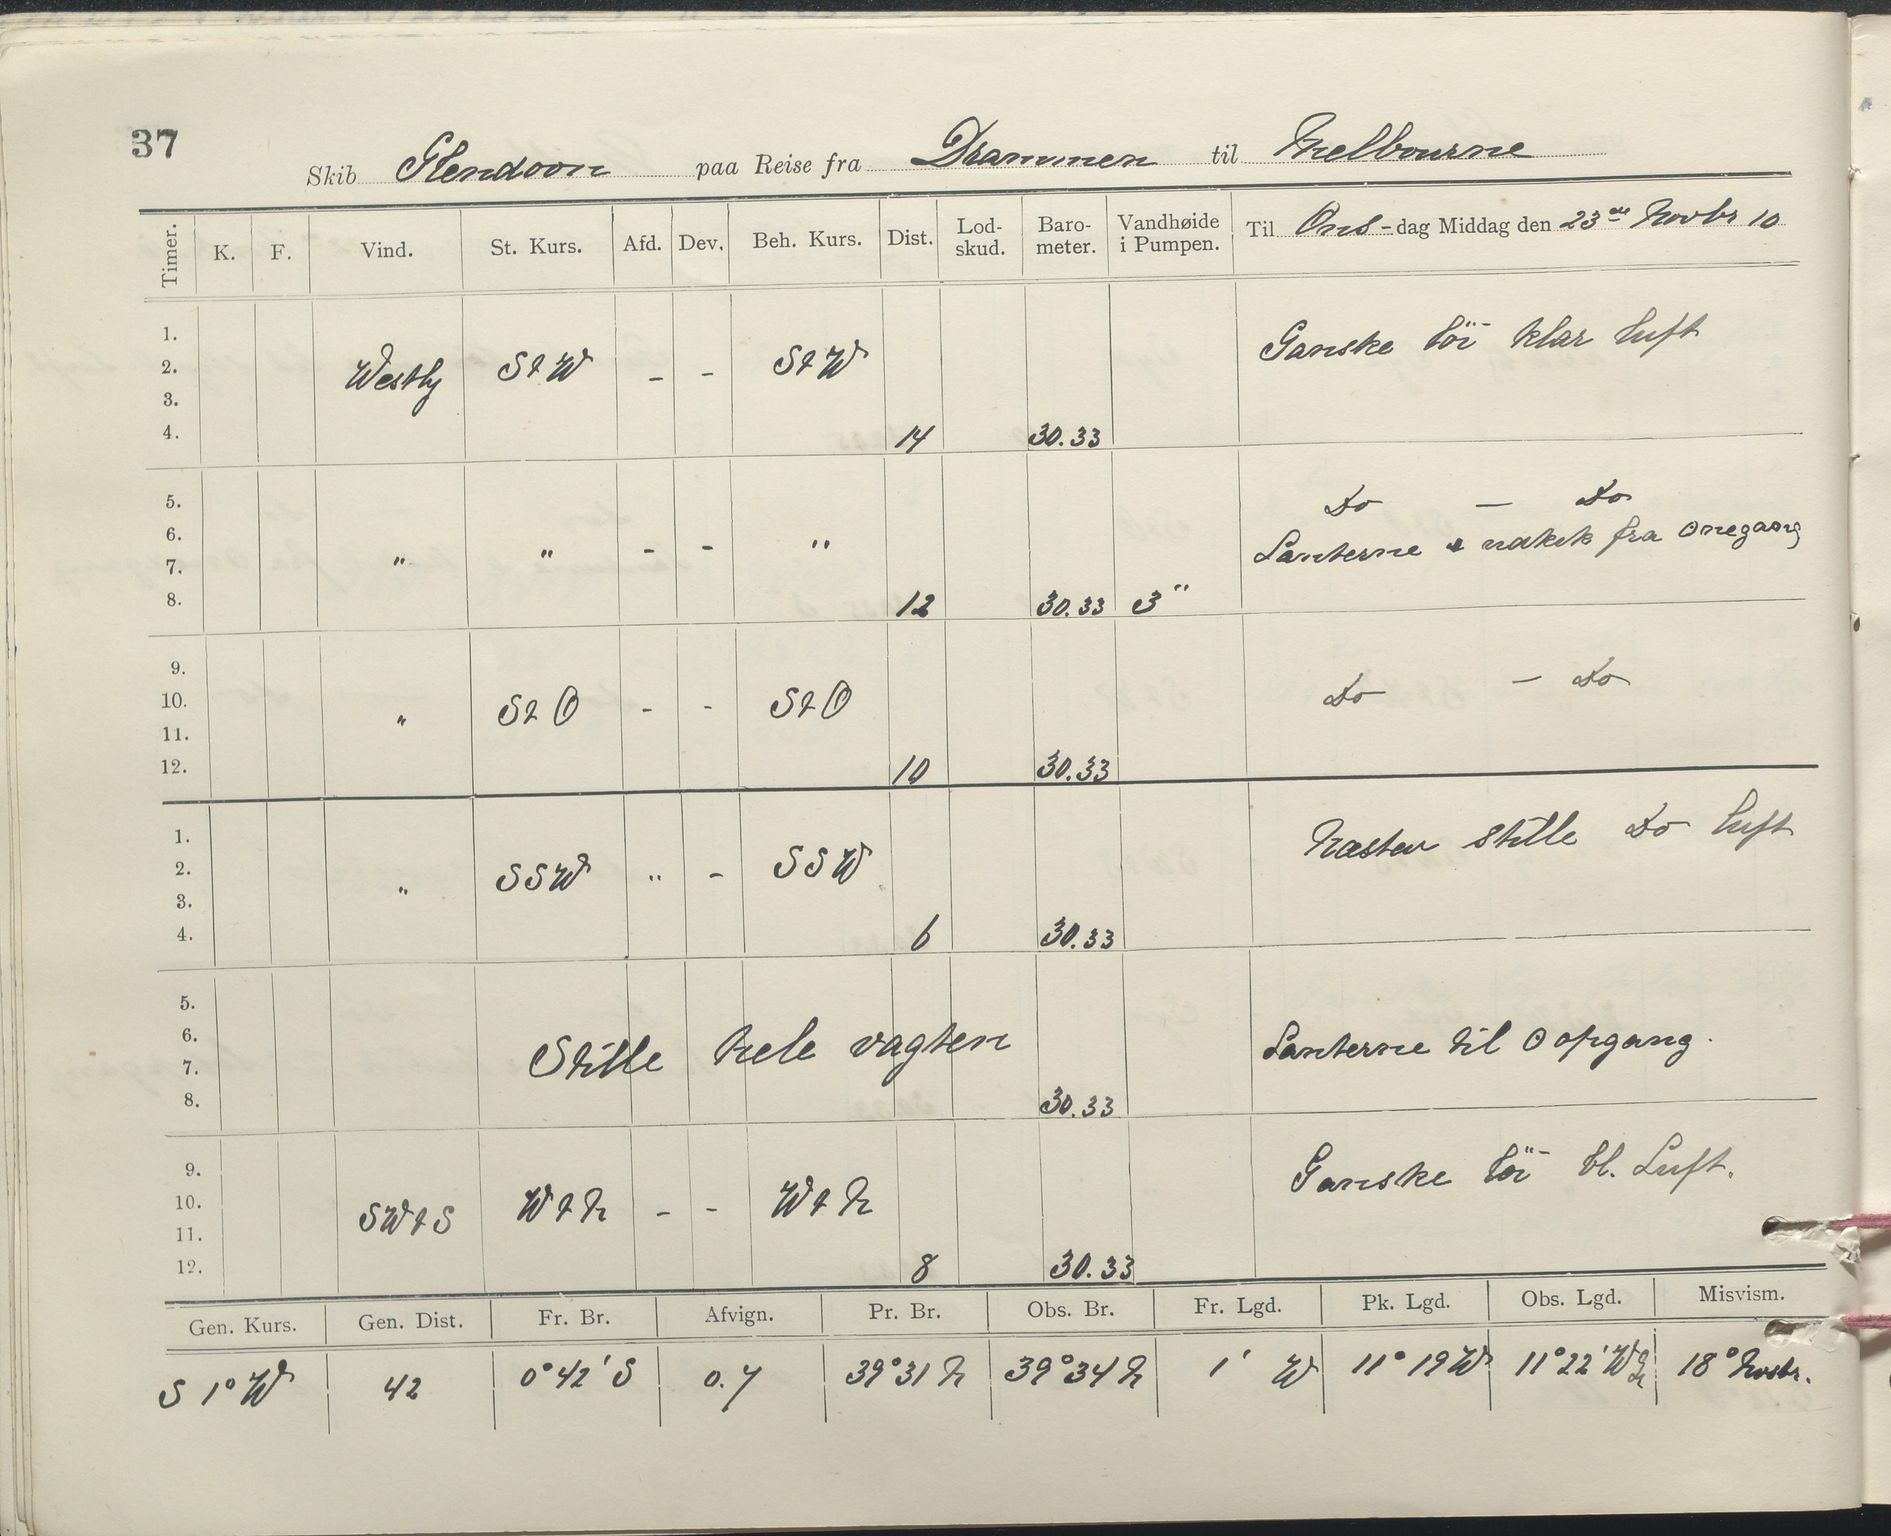 37
Skib Glendoon paa Reise fra Drammen til Melbourne
Timer. K. F. Vind. St. Kurs. Afd. Dev. Beh. Kurs. Dist. Lod-skud. Baro-meter. Vandhøide i Pumpen. Til Ons-dag Middag den 23de Novbr 10
1.
2. Westly S t W - - S t W Ganske löi klar luft
3.
4. 14 30.33
5. Do — Do
6. " " - - " Lanterne & udkik fra Onegang
7.
8. 12 30.33 3"
9.
10. " S t O - - S t O Do — Do
11.
12. 10 30.33
1. Næsten stille Do luft
2. " SSW " - SSW
3.
4. 6 30.33
5.
6. Stille hele vagten Lanterne til O opgang.
7.
8. 30.33
9. Ganske löi bl. Luft.
10. SW t S W t N - - W t N
11.
12. 8 30.33
Gen. Kurs. Gen. Dist. Fr. Br. Afvign. Pr. Br. Obs. Br. Fr. Lgd. Pk. Lgd. Obs. Lgd. Misvism.
S 1° W 42 0° 42' S 0.7 39° 31 N 39° 34 N 1' W 11° 19 W 11° 22' W 18°